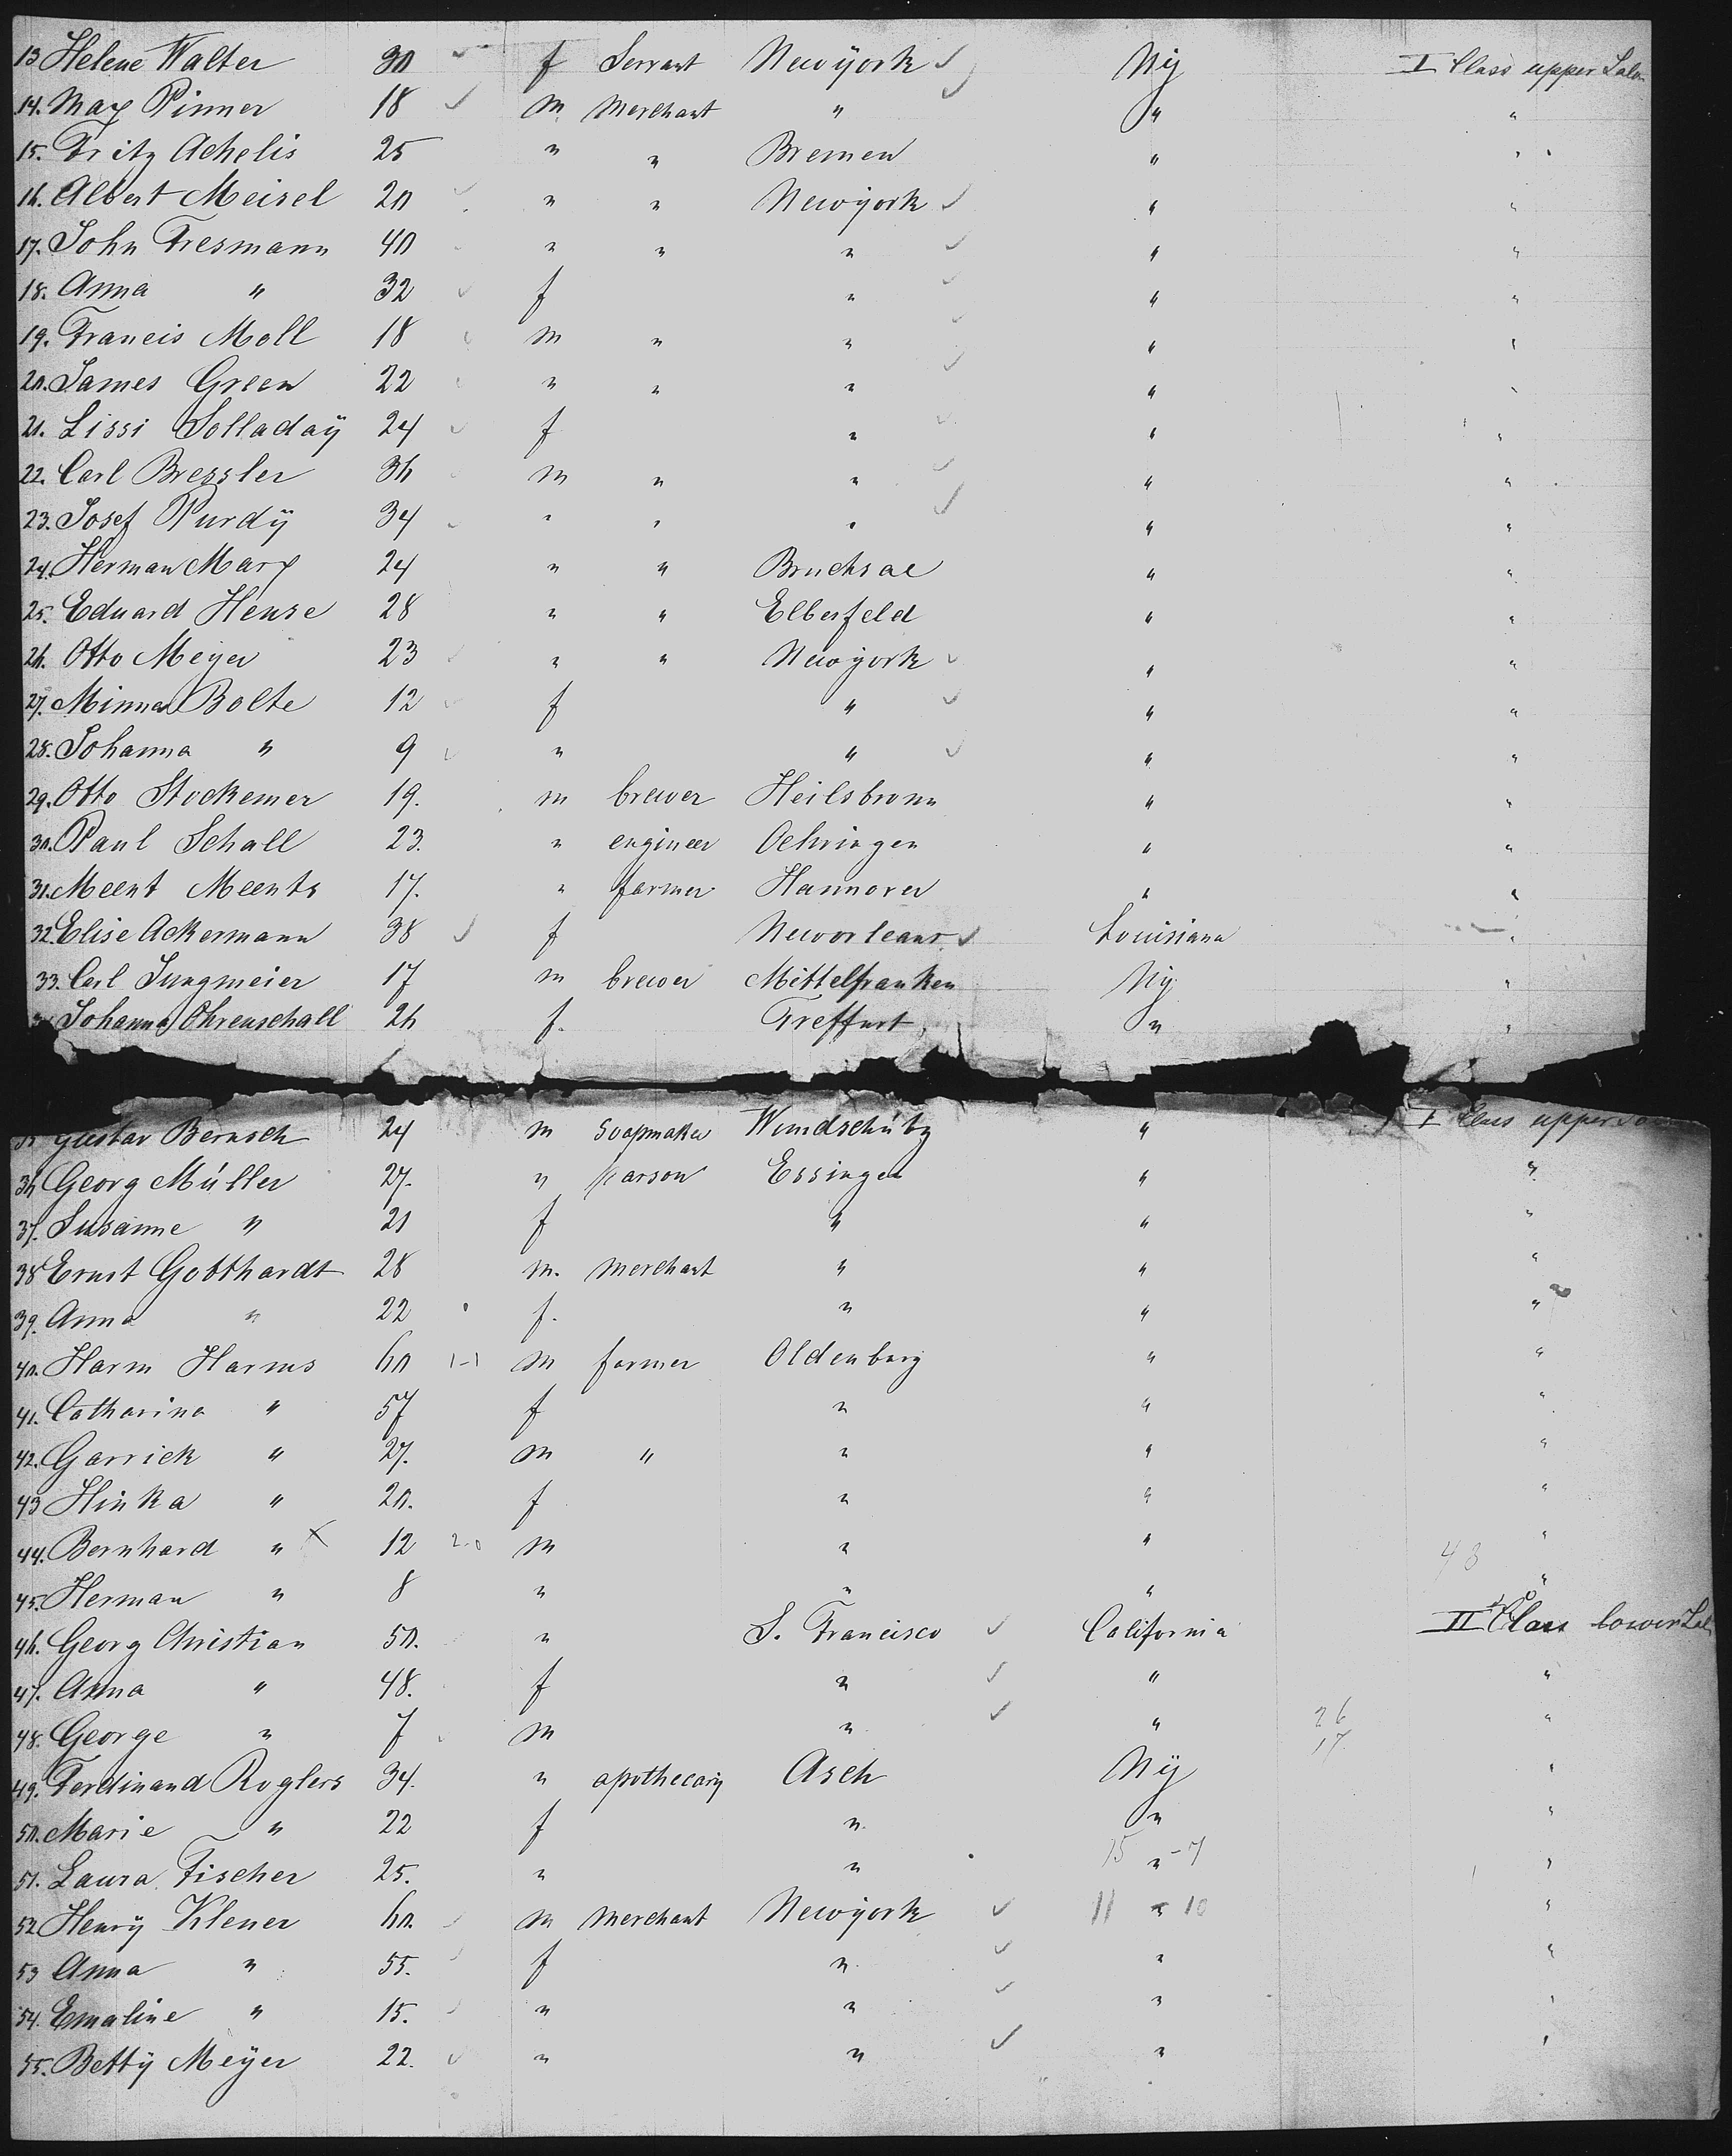 13 Helene Walter 30 f Servant Newyork Ny I Class upper Salon
14. Max Pinner 18 m Merchant " " "
15. Fritz Achelis 25 " " Bremen " "
16. Albert Meisel 20 " " Newyork " "
17. John Tresmann 40 " " " " "
18. Anna " 32 f " " "
19. Francis Moll 18 m " " " "
20. James Green 22 " " " " "
21. Lissi Solladaÿ 24 f " " "
22. Carl Bressler 36 m " " " "
23. Josef Purdÿ 34 " " " " "
24. Herman Marx 24 " " Bruchsal " "
25. Eduard Hense 28 " " Elberfeld " "
26. Otto Meyer 23 " " Newyork " "
27. Minna Bolte 12 f " " "
28. Johanna " 9 " " " "
29. Otto Stockemer 19. m brewer Heilsbronn " "
30. Paul Schall 23. " engineer Oehringen " "
31. Meent Meents 17. " farmer Hannover " "
32. Elise Ackermann 38 f Neworleans Louisiana "
33. Carl Jungmeier 17 m brewer Mittelfranken Ny "
Johanna Ohrenschall 26 f. Treffurt " "
35 Gustav Bernsch 24 m Soapmaker Wundschütz " I Class upper
36 Georg Müller 27. " parson Essingen " "
37. Susanne " 21 f " " "
38 Ernst Gotthardt 28 m. Merchant " " "
39. Anna " 22 f. " " "
40. Harm Harms 60 m farmer Oldenburg " "
41. Catharina " 57 f " " "
42. Garrick " 27. m " " " "
43 Hinka " 20. f " " "
44. Bernhard " X 12 m " " "
43
45. Herman " 8 " " " "
46. Georg Christian 50. " S. Francisco California II Class lower Sal
47. Anna " 48. f " " "
48. George " 7 m " " 26 "
17
49. Ferdinand Roglers 34. " apothecary Asch Nÿ "
50. Marie " 22 f " " "
51. Laura Fischer 25. " " 15 " - 7 "
52 Henrÿ Klener 60. m Merchant Newÿork 11 " 10 "
53 Anna " 55. f " " "
54. Emaline " 15. " " " "
55. Bettÿ Meÿer 22. " " " "